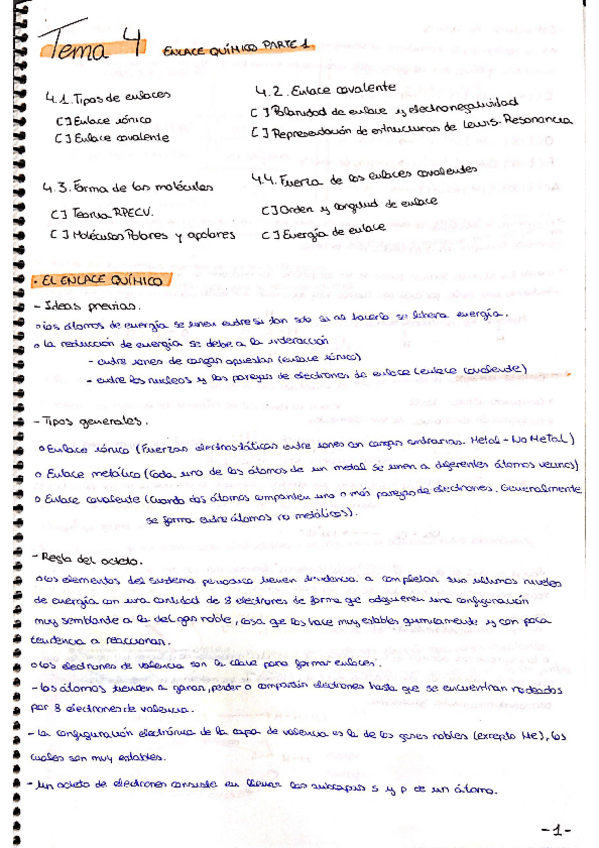 Tema 4 ENLACE QUÍMICO PARTE 1
4.1. Tipos de enlaces
[] Enlace iónico
[] Enlace covalente
4.2. Enlace covalente
[] Polaridad de enlace y electronegatividad
[] Representación de estructuras de Lewis. Resonancia
4.3. Forma de las moléculas
[] Teoría RPECV.
[] Moléculas Polares y apolares
4.4. Fuerza de los enlaces covalentes
[] Orden y longitud de enlace
[] Energía de enlace
· EL ENLACE QUÍMICO
- Ideas previas.
o los átomos de energía se unen entre si tan solo si al hacerlo se libera energía.
o la reducción de energía se debe a la interacción
- entre iones de cargas opuestas (enlace iónico)
- entre los nucleos y las parejas de electrones de enlace (enlace covalente)
- Tipos generales.
o Enlace iónico (Fuerzas electrostáticas entre iones con cargas contrarias. Metal - No Metal)
o Enlace metálico (Cada uno de los átomos de un metal se unen a diferentes átomos vecinos)
o Enlace covalente (Cuando dos átomos comparten una o más parejas de electrones. Generalmente
se forma entre átomos no metálicos).
- Regla del octeto.
o los elementos del sistema periodico tienen tendencia a completar sus ultimos niveles
de energía con una cantidad de 8 electrones de forma que adquieren una configuración
muy semblante a la del gas noble, cosa que los hace muy estables quimicamente y con poca
tendencia a reaccionar.
o Los electrones de valencia son la clave para formar enlaces.
- los átomos tienden a ganar, perder o compartir electrones hasta que se encuentran rodeados
por 8 electrones de valencia.
- La configuración electrónica de la capa de valencia es la de los gases nobles (excepto He), los
cuales son muy estables.
- Un octeto de electrones consiste en llenar las subcapas s y p de un átomo.
-1-